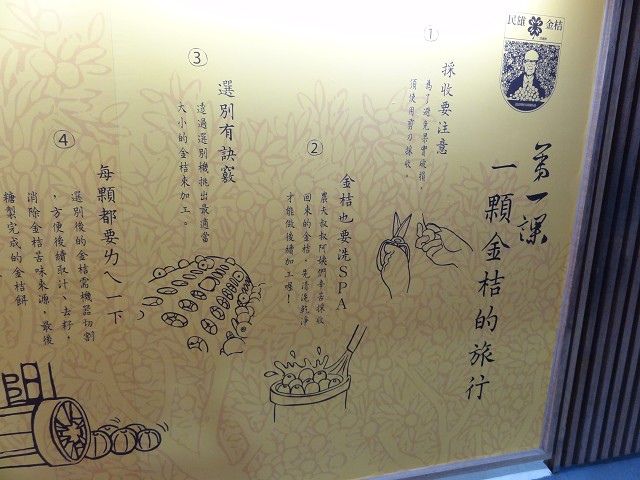 民雄 金桔
第一課
一顆金桔的旅行
①
採收要注意
為了避免果實破損，
須使用剪刀採收。
②
金桔也要洗SPA
農夫叔叔阿姨們辛苦採收
回來的金桔，先清洗乾淨
才能做後續加工喔！
③
選別有訣竅
透過選別機挑出最適當
大小的金桔來加工。
④
每顆都要ㄌㄟ一下
選別後的金桔需機器切割
，方便後續取汁、去籽，
消除金桔苦味來源，最後
糖製完成的金桔餅